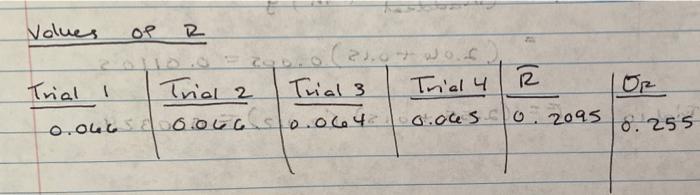 Values of R
Trial 1 Trial 2 Trial 3 Trial 4 R̅ σR
0.066 0.066 0.064 0.065 0.2095 0.255